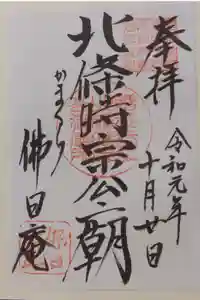 奉拝
令和元年
十月廿日
北條時宗公廟
かまくら
佛日庵